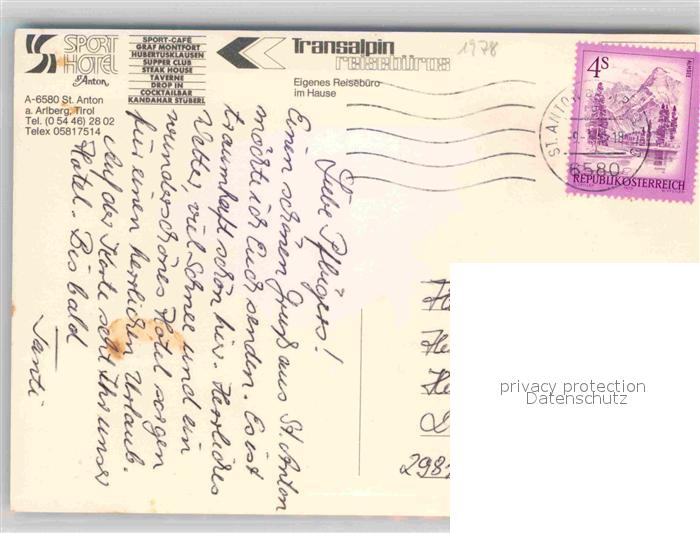 SPORT
HOTEL
St. Anton
A-6580 St. Anton
a. Arlberg, Tirol
Tel. (0 54 46) 28 02
Telex 05817514
SPORT-CAFÉ
GRAF MONTFORT
HUBERTUSKLAUSEN
SUPPER CLUB
STEAK HOUSE
TAVERNE
DROP IN
COCKTAILBAR
KANDAHAR STÜBERL
Transalpin
reisebüros
Eigenes Reisebüro
im Hause
1978
4S
REPUBLIK ÖSTERREICH
ST. ANTON
6580
Liebe Pflügers!
Einen schönen Gruß aus St. Anton
möchte ich Euch senden. Es ist
traumhaft schön hier. Herrliches
Wetter, viel Schnee und ein
wunderschönes Hotel sorgen
für einen herrlichen Urlaub.
Auf der Karte seht Ihr unser
Hotel. Bis bald
privacy protection
Datenschutz